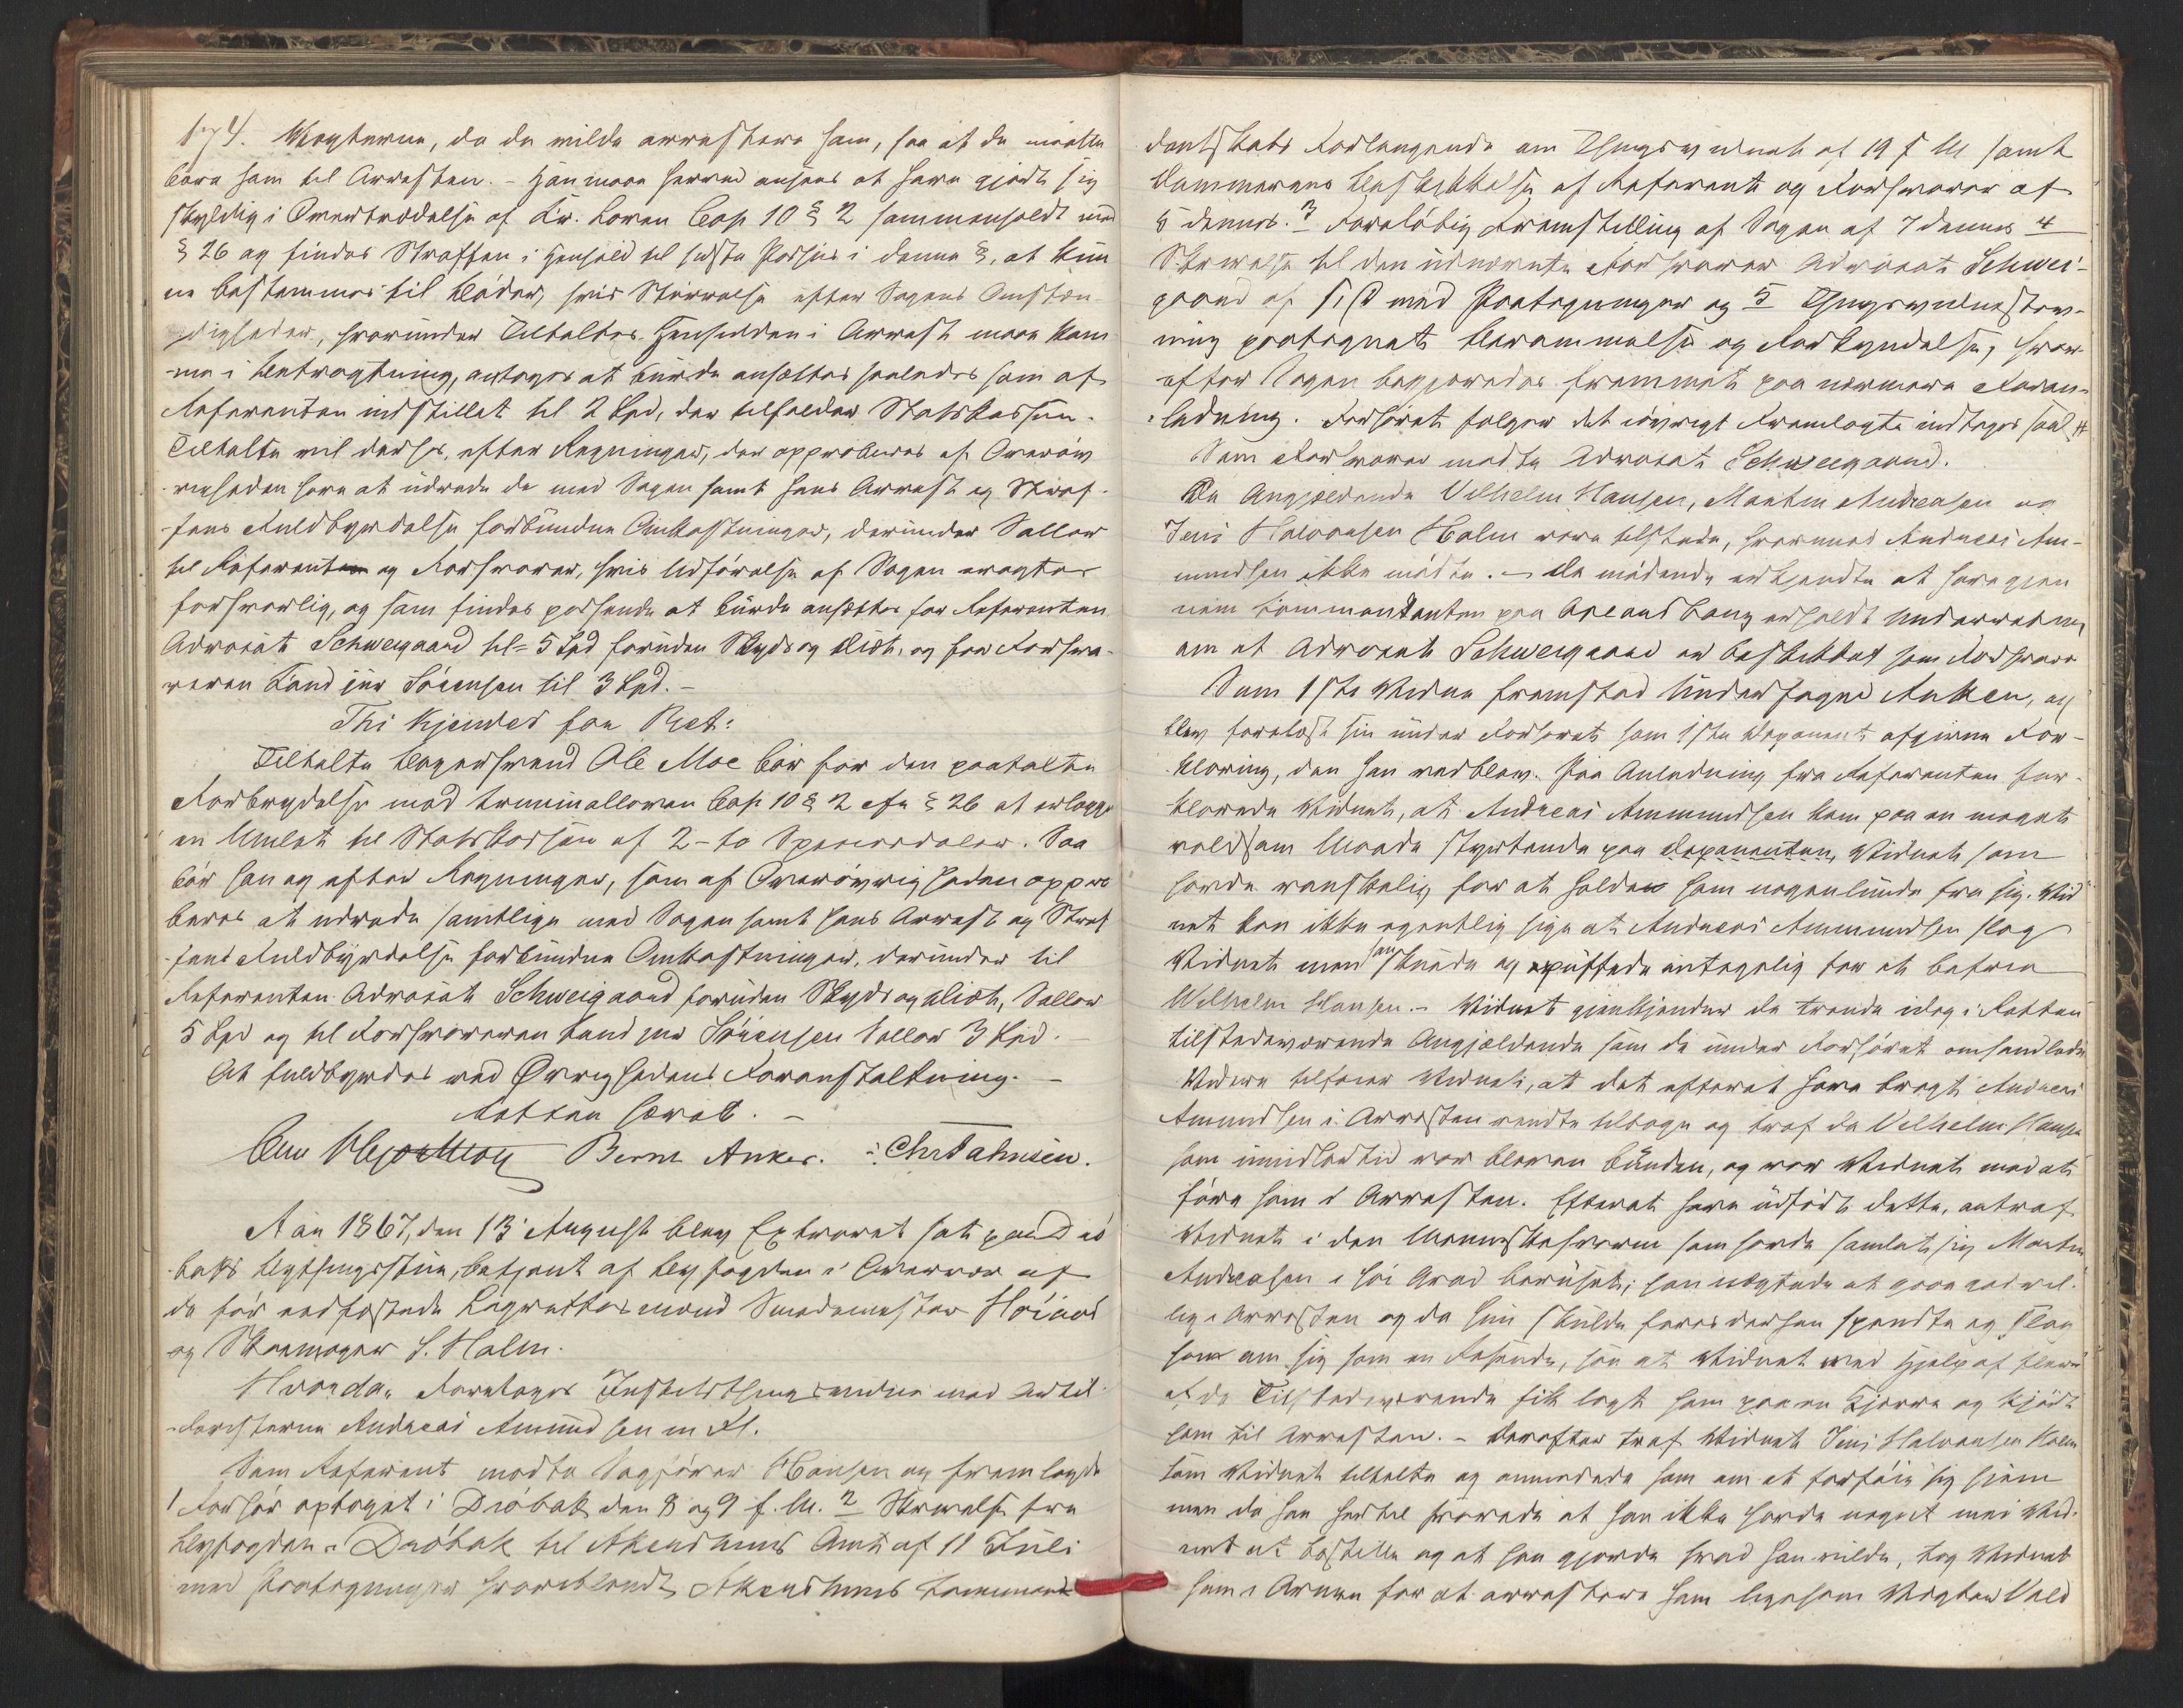 174. Vægterne, da de vilde arrestere ham, saa at de maatte
bære ham til Arresten. – Han maa herved ansees at have gjort sig
skyldig i Overtrædelse af Kr. Loven Cap 10 § 2 sammenholdt med
§ 26 og findes Straffen i Henhold til sidste Passus i denne §, at kun-
ne bestemmes til Bøder, hvis Størrelse efter Sagens Omstæn-
digheder, hvorunder Tiltaltes Henholden i Arrest maa kom-
me i Betragtning, antages at burde ansættes saaledes som af
Referenten indstillet til 2 Spd, der tilfalder Statskassen.
Tiltalte vil derhos, efter Regninger, der approberes af Overøv-
righeden have at udrede de med Sagen samt hans Arrest og Straf-
fens Fuldbyrdelse forbundne Omkostninger, derunder Sallær
til Referent og Forsvarer, hvis Udførelse af Sagen eragtes
forsvarlig, og som findes passende at burde ansættes for Referenten
Advocat Schweigaard til 5 Spd foruden Skyds og Diæt, og for Forsva-
reren Cand jur Sörensen til 3 Spd. –
Thi kjendes for Ret:
Tiltalte Borgersvend Ole Moe bør for den paatalte
Forbrydelse mod Criminalloven Cap 10 § 2 cfr § 26 at erlægge
en Mulct til Statskassen af 2 – to Speciedaler. Saa
bør han og efter Regninger, som af Overøvrigheden appro-
beres at udrede samtlige med Sagen samt hans Arrest og Straf-
fens Fuldbyrdelse forbundne Omkostninger, derunder til
Referenten Advocat Schweigaard foruden Skyds og Diæt, Sallær
5 Spd og til Forsvareren Cand jur Sörensen Sallær 3 Spd. –
At fuldbyrdes ved Øvrighedens Foranstaltning. –
Retten hævet. –
Bernt Anker.
Aar 1867, den 13 August blev Extraret sat paa Drö-
baks Bythingsstue, betjent af Byfogden i Overvær af
de før edfæstede Lagrettesmænd Smedemester
og Skomager S. Holm.
Hvorda: foretoges
Andreas Amundsen m Fl.
Som Referent mødte Sagfører Hansen og fremlagde
1 Forhör optaget i Dröbak den 8 og 9 f. M. 2 Skrivelse fra
Byfogden i Dröbak til Akershuus Amt af 11 Juli
med Paategninger hvoriblandt Akershuus Command
dantskabs Forlangende om Thingsvidnet af 19 f M samt
Kammerens Beskikkelse af Referent og Forsvarer af
5 dennes. 3 Foreløbig Fremstilling af Sagen af 7 dennes 4
Skrivelse til den udnævnte Forsvarer Advocat Schwei-
gaard af s. D med Paategninger og 5 Thingsvidnestæv-
ning paategnet Berammelse og Forkyndelse, hvor-
efter Sagen begjæredes fremmet paa nærmere Foran-
ledning. Forhøret følger det iøvrigt Fremlagte indtages saal #
Som Forsvarer mødte Advocat Schweigaard.
De Angjældende Vilhelm Hansen, Martin Andreasen og
Jens Halvorsen Holm vare tilstede, hvorimod Andreas Am-
mundsen ikke mødte. – De mødende erkjendte at have gjen-
nem Commandanten paa erholdt Underretning
om at Advocat Schweigaard er beskikket som Forsvarer
Som 1ste Vidne fremstod Underfogd Anker, og
blev forelæst sin under Forhøret som 1ste Deponent afgivne For-
klaring, den han vedblev. Paa Anledning fra Referenten for-
klarede Vidnet, at Andreas Ammundsen kom paa en meget
voldsom Maade styrtende paa Deponenten, Vidnet som
havde vanskelig for at holde ham nogenlunde fra sig. Vid-
net kan ikke egentlig sige at Andreas Ammundsen slog
Vidnet men han skreds og puffede antagelig for at befrie
Wilhelm Hansen. – Vidnet gjenkjender de trende idag i Retten
tilstedeværende Angjældende som de under Forhøret omhandlede.
Videre tilføier Vidnet, at det efterat have bragt Andreas
Amundsen i Arresten vendte tilbage og traf da Vilhelm Hansen
som imidlertid var bleven bunden, og var Vidnet med at
føre ham i Arresten. Efterat have udført dette, antraf
Vidnet i den Menneskesværm som havde samlet sig Martin
Andreasen i høi Grad beruset; han vægtede at gaa godvil-
lig i Arresten og da han skulde føres derhen spændte og slog
han om sig som en Rasende, saa at Vidnet med Hjælp af flere
af de Tilstedeværende fik lagt ham paa en Kjærre og kjørt
ham til Arresten. – Derefter traf Vidnet Jens Halvorsen Holm
som Vidnet tiltalte og anmodede ham om at forføie sig hjem
men da han hertil svarede at han ikke havde noget med Vid-
net at bestille og at han gjorde hvad han vilde, tog Vidnet
ham i Armen for at arrestere ham ligesom Vægter